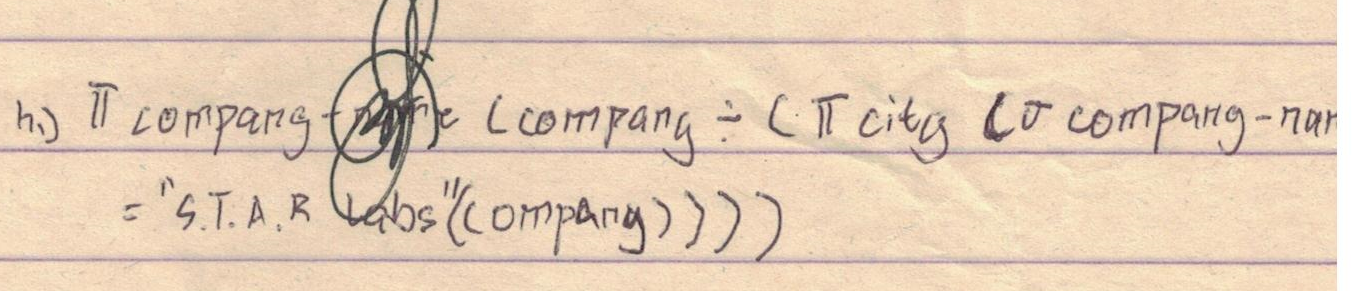 h.) π company-name (company ÷ (π city (σ company-nam
= "S.T.A.R Labs"(company))))